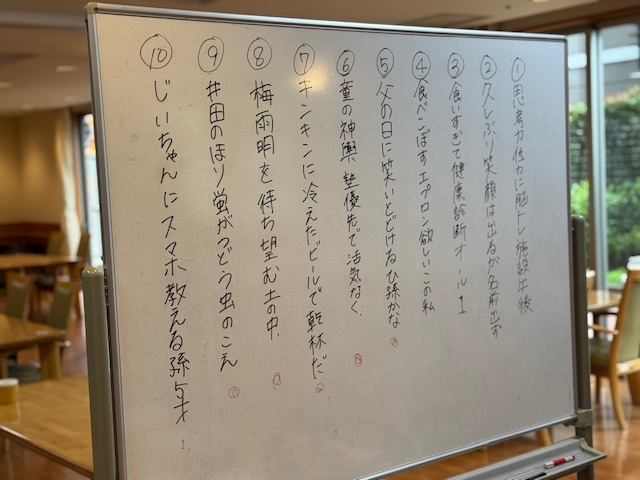 ① 思考力低力に脳トレ施設午後
② 久しぶり笑顔は出るが名前出ず
③ 食いすぎて健康診断オール1
④ 食べこぼすエプロン欲しいこの私
⑤ 父の日に笑いとどけるひ孫かな
⑥ 童の神輿塾優先で活気なく
⑦ キンキンに冷えたビールで乾杯だ
⑧ 梅雨明を待ち望む土の中
⑨ 井田のほり蛍がつどう虫のこえ
⑩ じいちゃんにスマホ教える孫5才